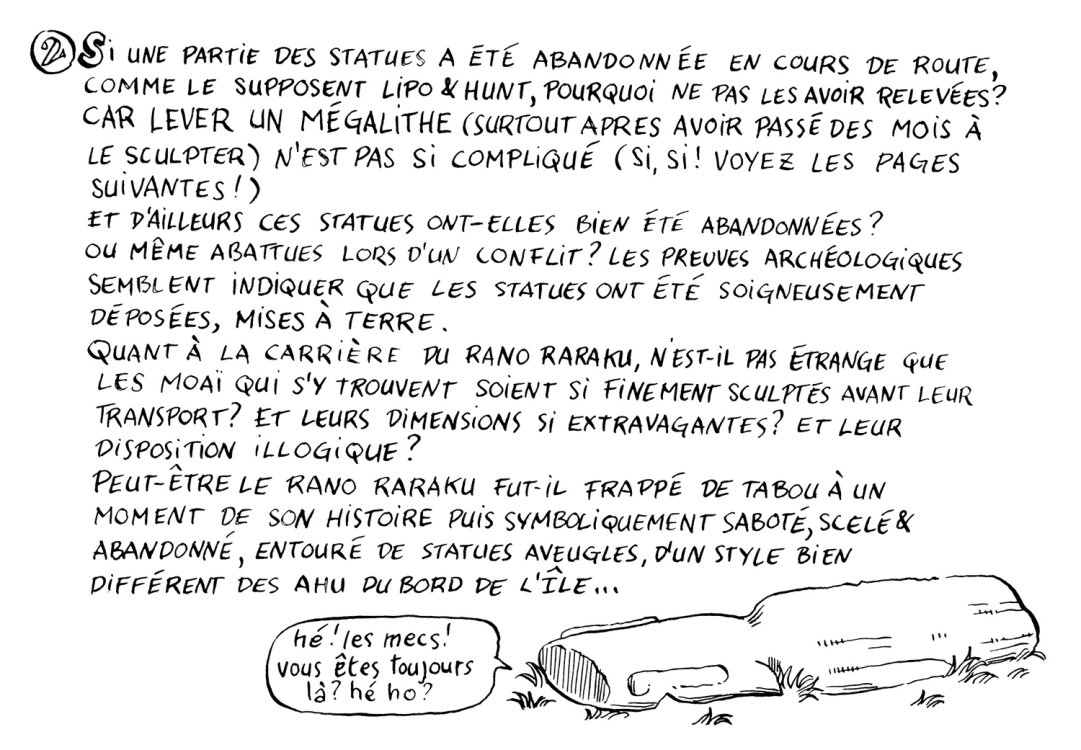 ② SI UNE PARTIE DES STATUES A ÉTÉ ABANDONNÉE EN COURS DE ROUTE,
COMME LE SUPPOSENT LIPO & HUNT, POURQUOI NE PAS LES AVOIR RELEVÉES?
CAR LEVER UN MÉGALITHE (SURTOUT APRES AVOIR PASSÉ DES MOIS À
LE SCULPTER) N'EST PAS SI COMPLIQUÉ (SI, SI! VOYEZ LES PAGES
SUIVANTES!)
ET D'AILLEURS CES STATUES ONT-ELLES BIEN ÉTÉ ABANDONNÉES?
OU MÊME ABATTUES LORS D'UN CONFLIT? LES PREUVES ARCHÉOLOGIQUES
SEMBLENT INDIQUER QUE LES STATUES ONT ÉTÉ SOIGNEUSEMENT
DÉPOSÉES, MISES À TERRE.
QUANT À LA CARRIÈRE DU RANO RARAKU, N'EST-IL PAS ÉTRANGE QUE
LES MOAÏ QUI S'Y TROUVENT SOIENT SI FINEMENT SCULPTÉS AVANT LEUR
TRANSPORT? ET LEURS DIMENSIONS SI EXTRAVAGANTES? ET LEUR
DISPOSITION ILLOGIQUE?
PEUT-ÊTRE LE RANO RARAKU FUT-IL FRAPPÉ DE TABOU À UN
MOMENT DE SON HISTOIRE PUIS SYMBOLIQUEMENT SABOTÉ, SCELÉ &
ABANDONNÉ, ENTOURÉ DE STATUES AVEUGLES, D'UN STYLE BIEN
DIFFÉRENT DES AHU DU BORD DE L'ÎLE...
hé! les mecs!
vous êtes toujours
là? hé ho?